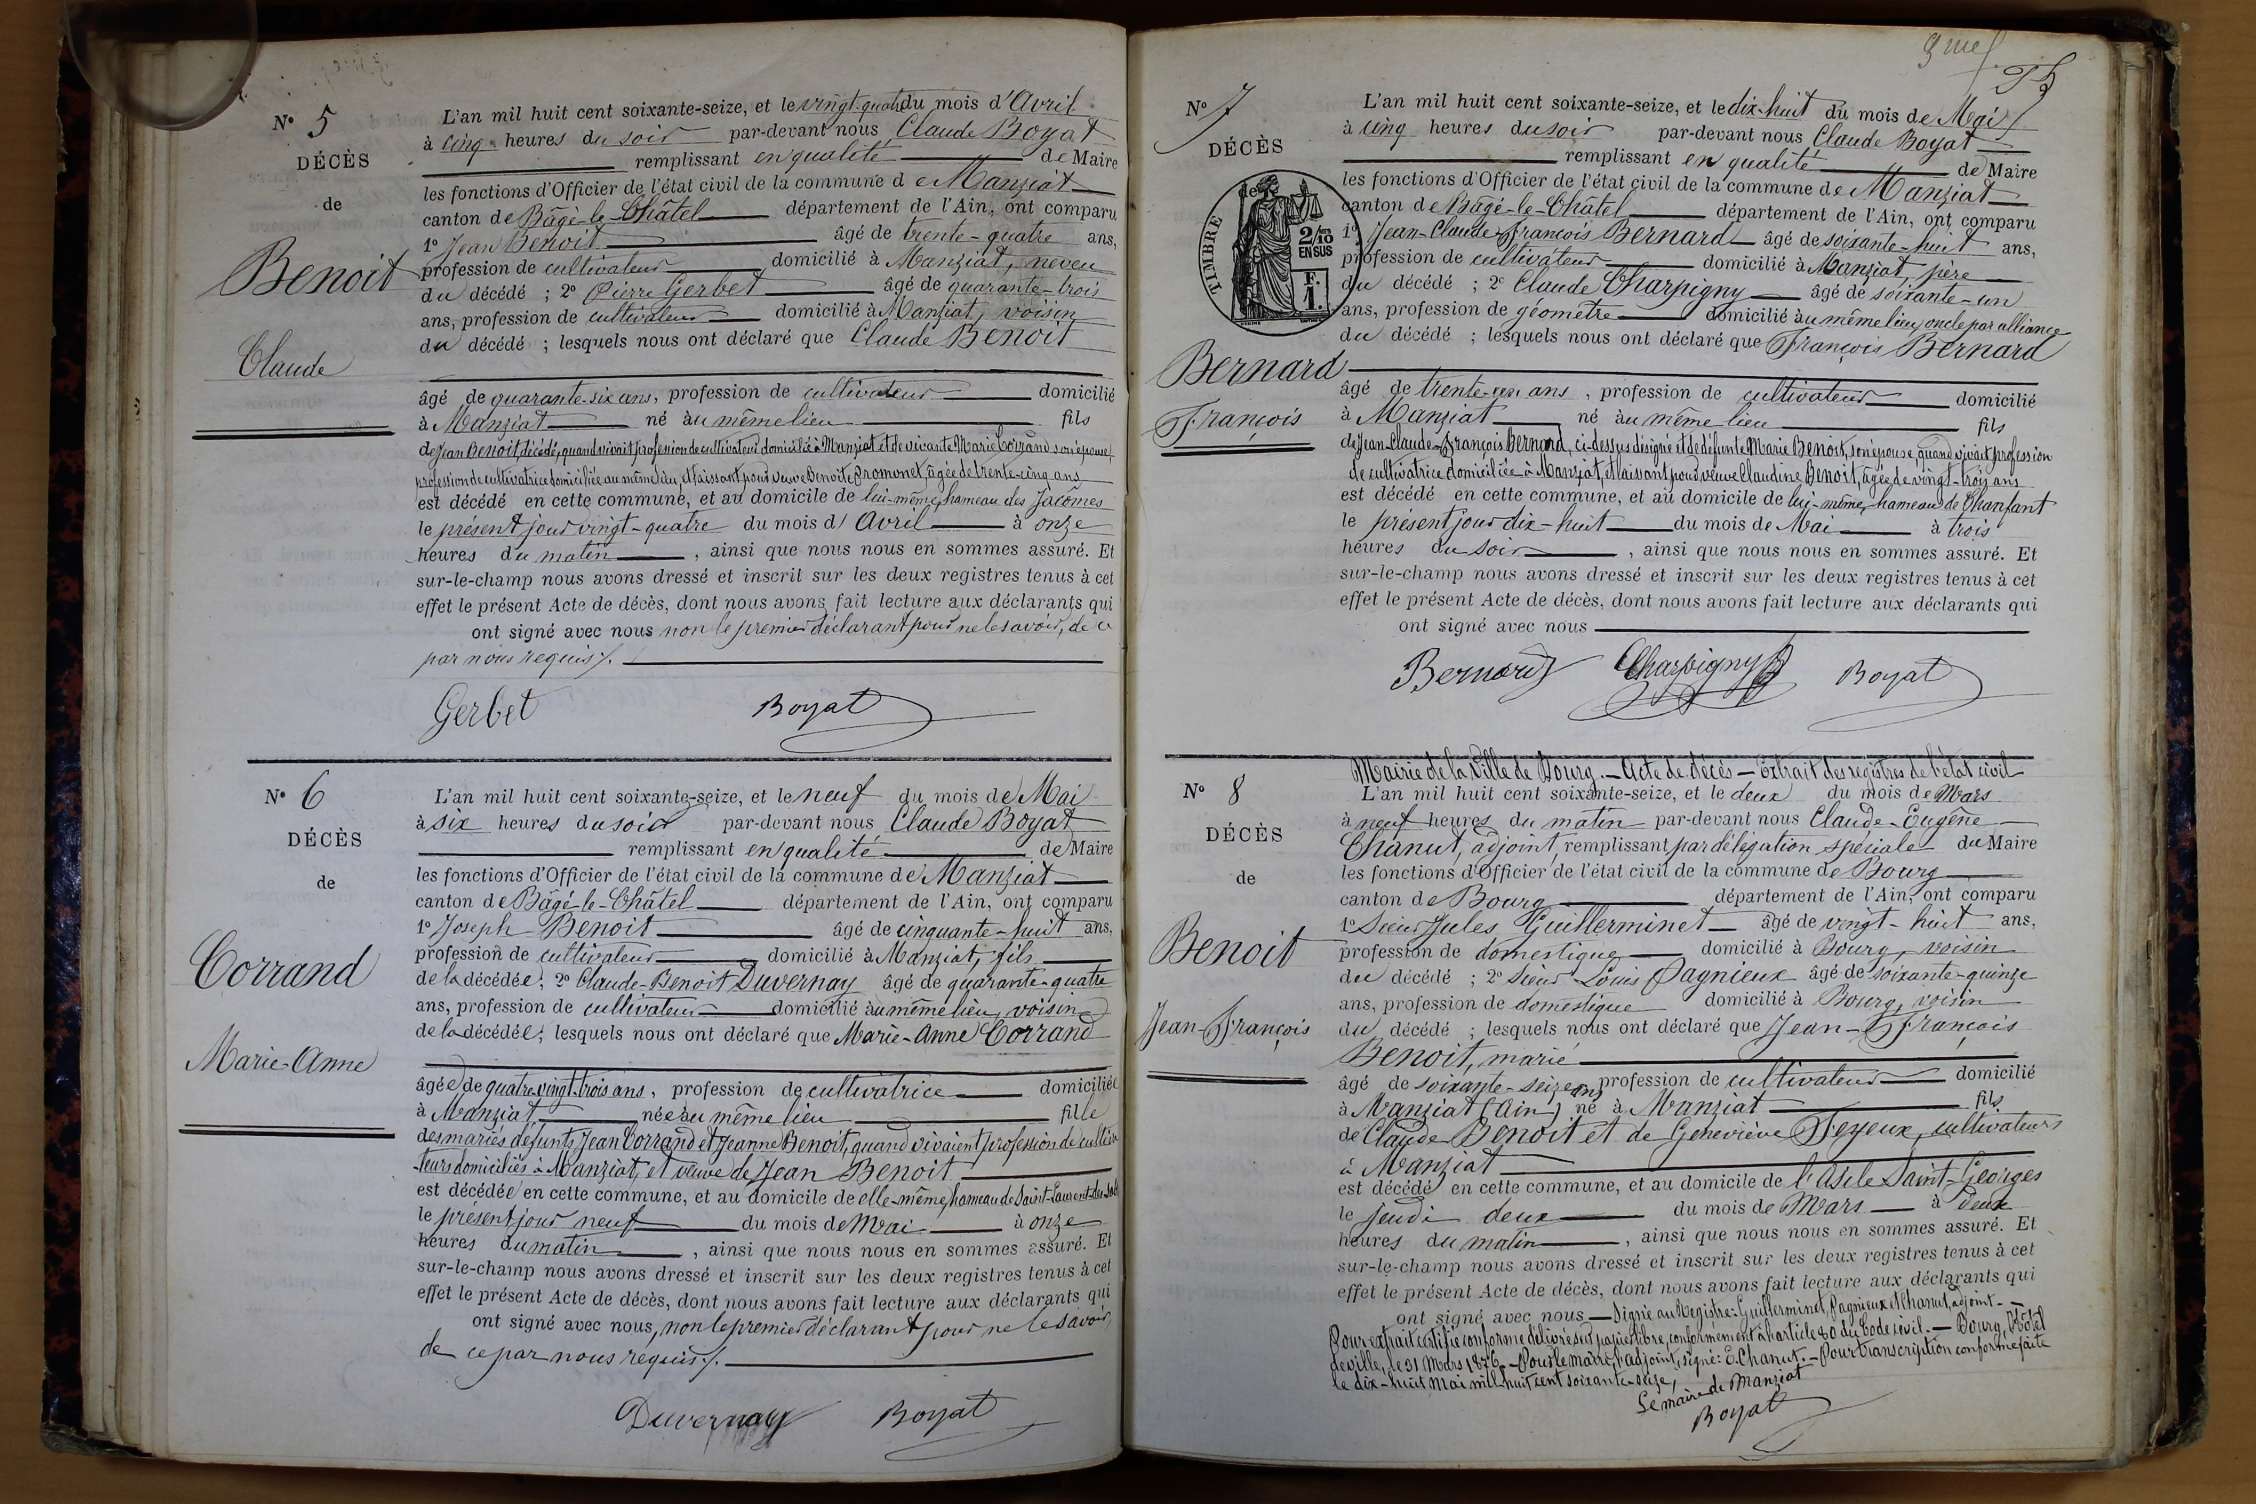 N° 5
DÉCÈS
de
Benoit
Claude
L'an mil huit cent soixante-seize, et le vingt-quatre du mois d'Avril
à cinq heures du soir par-devant nous Claude Boyat
remplissant en qualité de Maire
les fonctions d'Officier de l'état civil de la commune de Manziat
canton de Bâgé-le-Châtel département de l'Ain, ont comparu
1° Jean Benoit âgé de trente-quatre ans,
profession de cultivateur domicilié à Manziat, neveu
du décédé ; 2° Pierre Gerbet âgé de quarante-trois
ans, profession de cultivateur domicilié à Manziat, voisin
du décédé ; lesquels nous ont déclaré que Claude Benoit
âgé de quarante-six ans, profession de cultivateur domicilié
à Manziat né au même lieu fils
de Jean Benoit, décédé, quand vivait profession de cultivateur domicilié à Manziat et de vivante Marie Corrand son épouse,
profession de cultivatrice domiciliée au même lieu, et laissant pour veuve Benoite Promonet, âgée de trente-cinq ans
est décédé en cette commune, et au domicile de lui-même, hameau des Jacômes
le présent jour vingt-quatre du mois d'Avril à onze
heures du matin, ainsi que nous nous en sommes assuré. Et
sur-le-champ nous avons dressé et inscrit sur les deux registres tenus à cet
effet le présent Acte de décès, dont nous avons fait lecture aux déclarants qui
ont signé avec nous non le premier déclarant pour ne le savoir, de ce
par nous requis /.
Gerbet Boyat
N° 6
DÉCÈS
de
Corrand
Marie-Anne
L'an mil huit cent soixante-seize, et le neuf du mois de Mai
à six heures du soir par-devant nous Claude Boyat
remplissant en qualité de Maire
les fonctions d'Officier de l'état civil de la commune de Manziat
canton de Bâgé-le-Châtel département de l'Ain, ont comparu
1° Joseph Benoit âgé de cinquante-huit ans,
profession de cultivateur domicilié à Manziat, fils
de la décédée ; 2° Claude-Benoit Duvernay âgé de quarante-quatre
ans, profession de cultivateur domicilié au même lieu, voisin
de la décédée ; lesquels nous ont déclaré que Marie-Anne Corrand
âgée de quatre-vingt-trois ans, profession de cultivatrice domiciliée
à Manziat née au même lieu fille
des mariés défunts Jean Corrand et Jeanne Benoit, quand vivaient profession de cultiva
-teurs domiciliés à Manziat, et veuve de Jean Benoit
est décédée en cette commune, et au domicile de elle-même, hameau de Saint-Laurent-des-
le présent jour neuf du mois de Mai à onze
heures du matin, ainsi que nous nous en sommes assuré. Et
sur-le-champ nous avons dressé et inscrit sur les deux registres tenus à cet
effet le présent Acte de décès, dont nous avons fait lecture aux déclarants qui
ont signé avec nous, non le premier déclarant pour ne le savoir,
de ce par nous requis /.
Duvernay Boyat
N° 7
DÉCÈS
de
TIMBRE
2/10
EN SUS
F.
1
Bernard
François
L'an mil huit cent soixante-seize, et le dix-huit du mois de Mai
à cinq heures du soir par-devant nous Claude Boyat
remplissant en qualité de Maire
les fonctions d'Officier de l'état civil de la commune de Manziat
canton de Bâgé-le-Châtel département de l'Ain, ont comparu
1° Jean-Claude-François Bernard âgé de soixante-huit ans,
profession de cultivateur domicilié à Manziat, père
du décédé ; 2° Claude Charpigny âgé de soixante-un
ans, profession de géomètre domicilié au même lieu, oncle par alliance
du décédé ; lesquels nous ont déclaré que François Bernard
âgé de trente-un ans, profession de cultivateur domicilié
à Manziat né au même lieu fils
de Jean-Claude-François Bernard, ci-dessus désigné et de défunte Marie Benoit, son épouse, quand vivait profession
de cultivatrice domiciliée à Manziat, et laissant pour veuve Claudine Benoit, âgée de vingt-trois ans
est décédé en cette commune, et au domicile de lui-même, hameau de Chanfant
le présent jour dix-huit du mois de Mai à trois
heures du soir, ainsi que nous nous en sommes assuré. Et
sur-le-champ nous avons dressé et inscrit sur les deux registres tenus à cet
effet le présent Acte de décès, dont nous avons fait lecture aux déclarants qui
ont signé avec nous
Bernard Charpigny Boyat
N° 8
DÉCÈS
de
Benoit
Jean-François
Mairie de la Ville de Bourg. — Acte de décès — Extrait des registres de l'état civil
L'an mil huit cent soixante-seize, et le deux du mois de Mars
à neuf heures du matin par-devant nous Claude-Eugène
Chanut, adjoint, remplissant par délégation spéciale du Maire
les fonctions d'Officier de l'état civil de la commune de Bourg
canton de Bourg département de l'Ain, ont comparu
1° Sieur Jules Guillerminet âgé de vingt-huit ans,
profession de domestique domicilié à Bourg, voisin
du décédé ; 2° Sieur Louis Pagnieux âgé de soixante-quinze
ans, profession de domestique domicilié à Bourg, voisin
du décédé ; lesquels nous ont déclaré que Jean-François
Benoit, marié
âgé de soixante-seize ans profession de cultivateur domicilié
à Manziat (Ain) né à Manziat fils
de Claude Benoit et de Geneviève Feyeux, cultivateurs
à Manziat
est décédé en cette commune, et au domicile de l'Asile Saint-Georges
le Jeudi deux du mois de Mars à deux
heures du matin, ainsi que nous nous en sommes assuré. Et
sur-le-champ nous avons dressé et inscrit sur les deux registres tenus à cet
effet le présent Acte de décès, dont nous avons fait lecture aux déclarants qui
ont signé avec nous — Signé au Registre : Guillerminet, Pagnieux et Chanut, adjoint. —
Pour extrait certifié conforme délivré sur papier libre, conformément à l'article 80 du Code civil. — Bourg, Hôtel
de ville, le 31 Mars 1876. — Pour le maire, l'adjoint, signé : E. Chanut. — Pour transcription conforme faite
le dix-huit Mai mil huit cent soixante-seize,
Le maire de Manziat
Boyat